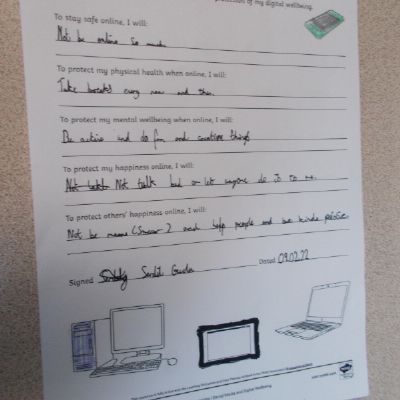 of my digital wellbeing.
To stay safe online, I will:
Not be online so much
To protect my physical health when online, I will:
Take breaks every now and then.
To protect my mental wellbeing when online, I will:
Be active and do fun and creative things
To protect my happiness online, I will:
Not talk bad or let anyone do so to me.
To protect others' happiness online, I will:
Not be means (Swear) and help people and be kinda
Signed
Dated 09.02.22